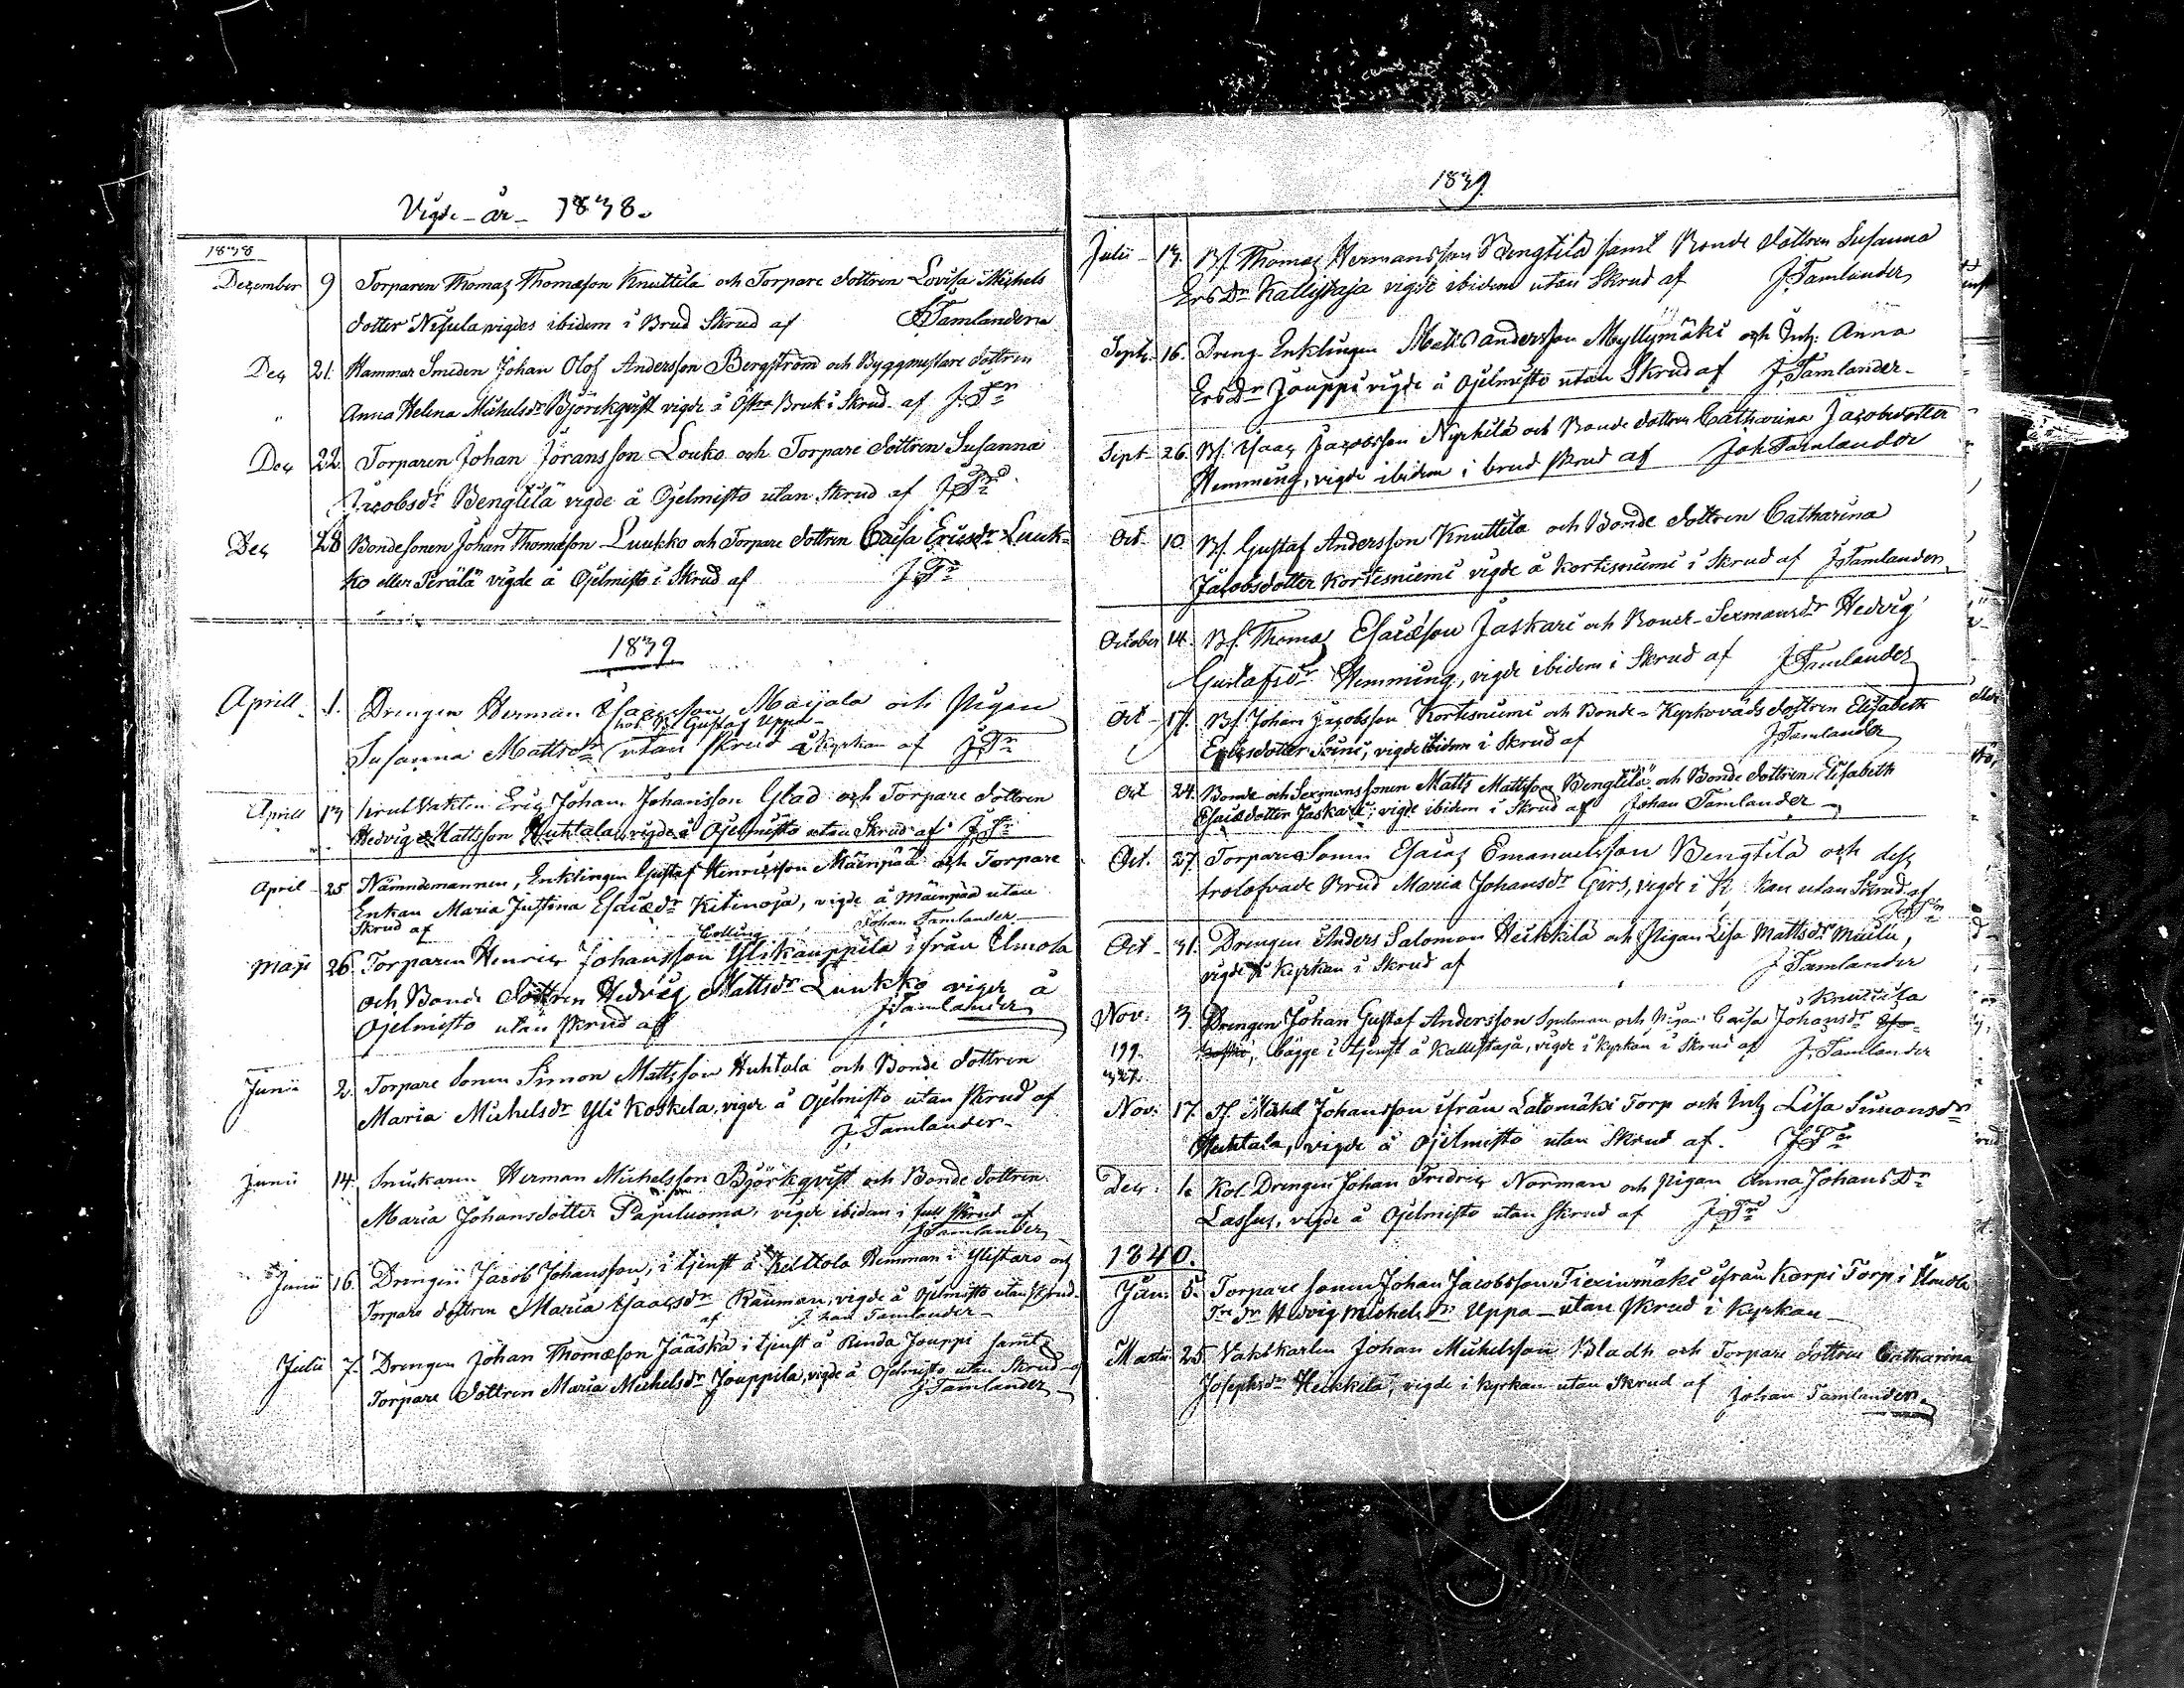 Vigde - år - 1838.
1838
December 9 Torparen Thomas Thomæson Knuttila och Torpare dottren Lovisa Michels
dotter Nisula, vigdes ibidem i Brud Skrud af J. Tamlander
Dec 21. Hammar Smeden Johan Olof Andersson Bergström och Byggmästare dottren
" Anna Helena Michelsdr Björckqvist vigde å Östra Bruk i Skrud af J. Tr
Dec 22. Torparen Johan Jöransson Louko och Torpare dottren Susanna
Jacobsdr Bengtilä vigde å Ojelmisto utan Skrud af J. Tr
Dec 28 Bondesonen Johan Thomæson Luukko och Torpare dottren Caisa Ericsdr Luuk-
ko eller Perälä vigde å Ojelmisto i Skrud af J. Tr
1839
Aprill 1. Drengen Herman Isaacsson Maijala och Pigan
hos Bd Gustaf Uppa
Susanna Mattsdr utan skrud i Kyrkan af J. Tr
Aprill 13 Eric Johan Johansson Glad och Torpare dottren
Hedvig Mattsson Huhtala, vigde å Ojelmisto utan Skrud af J. Tr
April 25 Nämndemannen, Enklingen Gustaf Henricsson Mäinpää och Torpare
Enkan Maria Justina Esaiædr Kitinoja, vigde å Mäinpää utan
Skrud af Johan Tamlander
Maji 26. Torparen Henric Johansson Ylikauppila ifrån Ilmola
och Bonde dottren Hedvig Mattsdr Luukko vigde å
Ojelmisto utan skrud af J. Tamlander
Junii 2. Torpare Sonen Simon Mattsson Huhtala och Bonde dottren
Maria Michelsdr Yli Koskela, vigde å Ojelmisto utan skrud af
J. Tamlander
Junii 14. Snickaren Herman Michelsson Björkqvist och Bonde dottren
Maria Johansdotter Pajuluoma, vigde ibidem i full skrud af
J. Tamlander
Junii 16. Drengen Jacob Johansson, i tjenst å Kelttola Hemman i Ylistaro och
Torpare dottren Maria Isaacsdr Rauman, vigde å Ojelmisto utan Skrud
af Johan Tamlander
Julii 7. Drengen Johan Thomæson Jääskä i tjenst å Rinda Jouppi samt
Torpare dottren Maria Michelsdr Jouppila, vigde å Ojelmisto utan Skrud af
J. Tamlander
1839
Julii 13. Bs. Thomas Hermansson Bengtilä samt Bonde dottren Susanna
Ers Dr Kallistaja vigde ibidem utan Skrud af J. Tamlander
Sept. 16. Dreng Enklingen Matts Andersson Myllymäki och Inh: Anna
Ers Dr Jouppi vigde å Ojelmisto utan Skrud af J. Tamlander
Sept 26. Bs. Isaac Jacobsson Nyrhilä och Bonde dottren Catharina Jacobsdotter
Hemming, vigde ibidem i brud skrud af Joh Tamlander
Oct 10. Bs. Gustaf Andersson Knuttila och Bonde dottren Catharina
Jacobsdotter Kortesniemi vigde å Kortesniemi i Skrud af J. Tamlander
October 14. Bs. Thomas Esaiæson Jaskari och Bonde-Sexmansdr Hedvig
Gustafsdr Hemming, vigde ibidem i Skrud af J. Tamlander
Oct 17. Bs. Johan Jacobsson Kortesniemi och Bonde-Kyrkovärds dottren Elisabeth
Ericsdotter Sini, vigde ibidem i Skrud af J. Tamlander
Oct 24. Bonde och Sexmanssonen Matts Mattsson Bengtilä och Bonde dottren Elisabeth
Esaiædotter Jaskari, vigde ibidem i Skrud af Johan Tamlander
Oct. 27. Torpare Sonen Esaias Emanuelsson Bengtilä och dess
trolofvade Brud Maria Johansdr Girs, vigde i K kan utan Skrud af
J. Tr
Oct 31. Drengen Anders Salomon Heikkilä och Pigan Lisa Mattsdr
vigde i Kyrkan i Skrud af J. Tamlander
Knuttila
Nov: 3. Drengen Johan Gustaf Andersson Spelman och Pigan Caisa Johansdr
199. bägge i tjenst å Kallistaja, vigde i Kyrkan i Skrud af J. Tamlander
327.
Nov: 17. Michel Johansson ifrån Latomäki Torp och Inh Lisa Simonsdr
Huhtala, vigde å Ojelmisto utan Skrud af. J. Tr
Dec: 1. Kol Drengen Johan Fredric Norman och Pigan Anna Johans Dr
Lassus, vigde å Ojelmisto utan Skrud af J. Tr
1840.
Jan: 5. Torpare sonen Johan Jacobsson ifrån Korpi Torp i Ilmola
Tr Dr Hedvig Michels Dr Uppa - utan skrud i Kyrkan
Martii 25 Vaktkarlen Johan Michelsson Bladh och Torpare dottren Catharina
Josephsdr Heikkilä, vigde i Kyrkan utan Skrud af Johan Tamlander